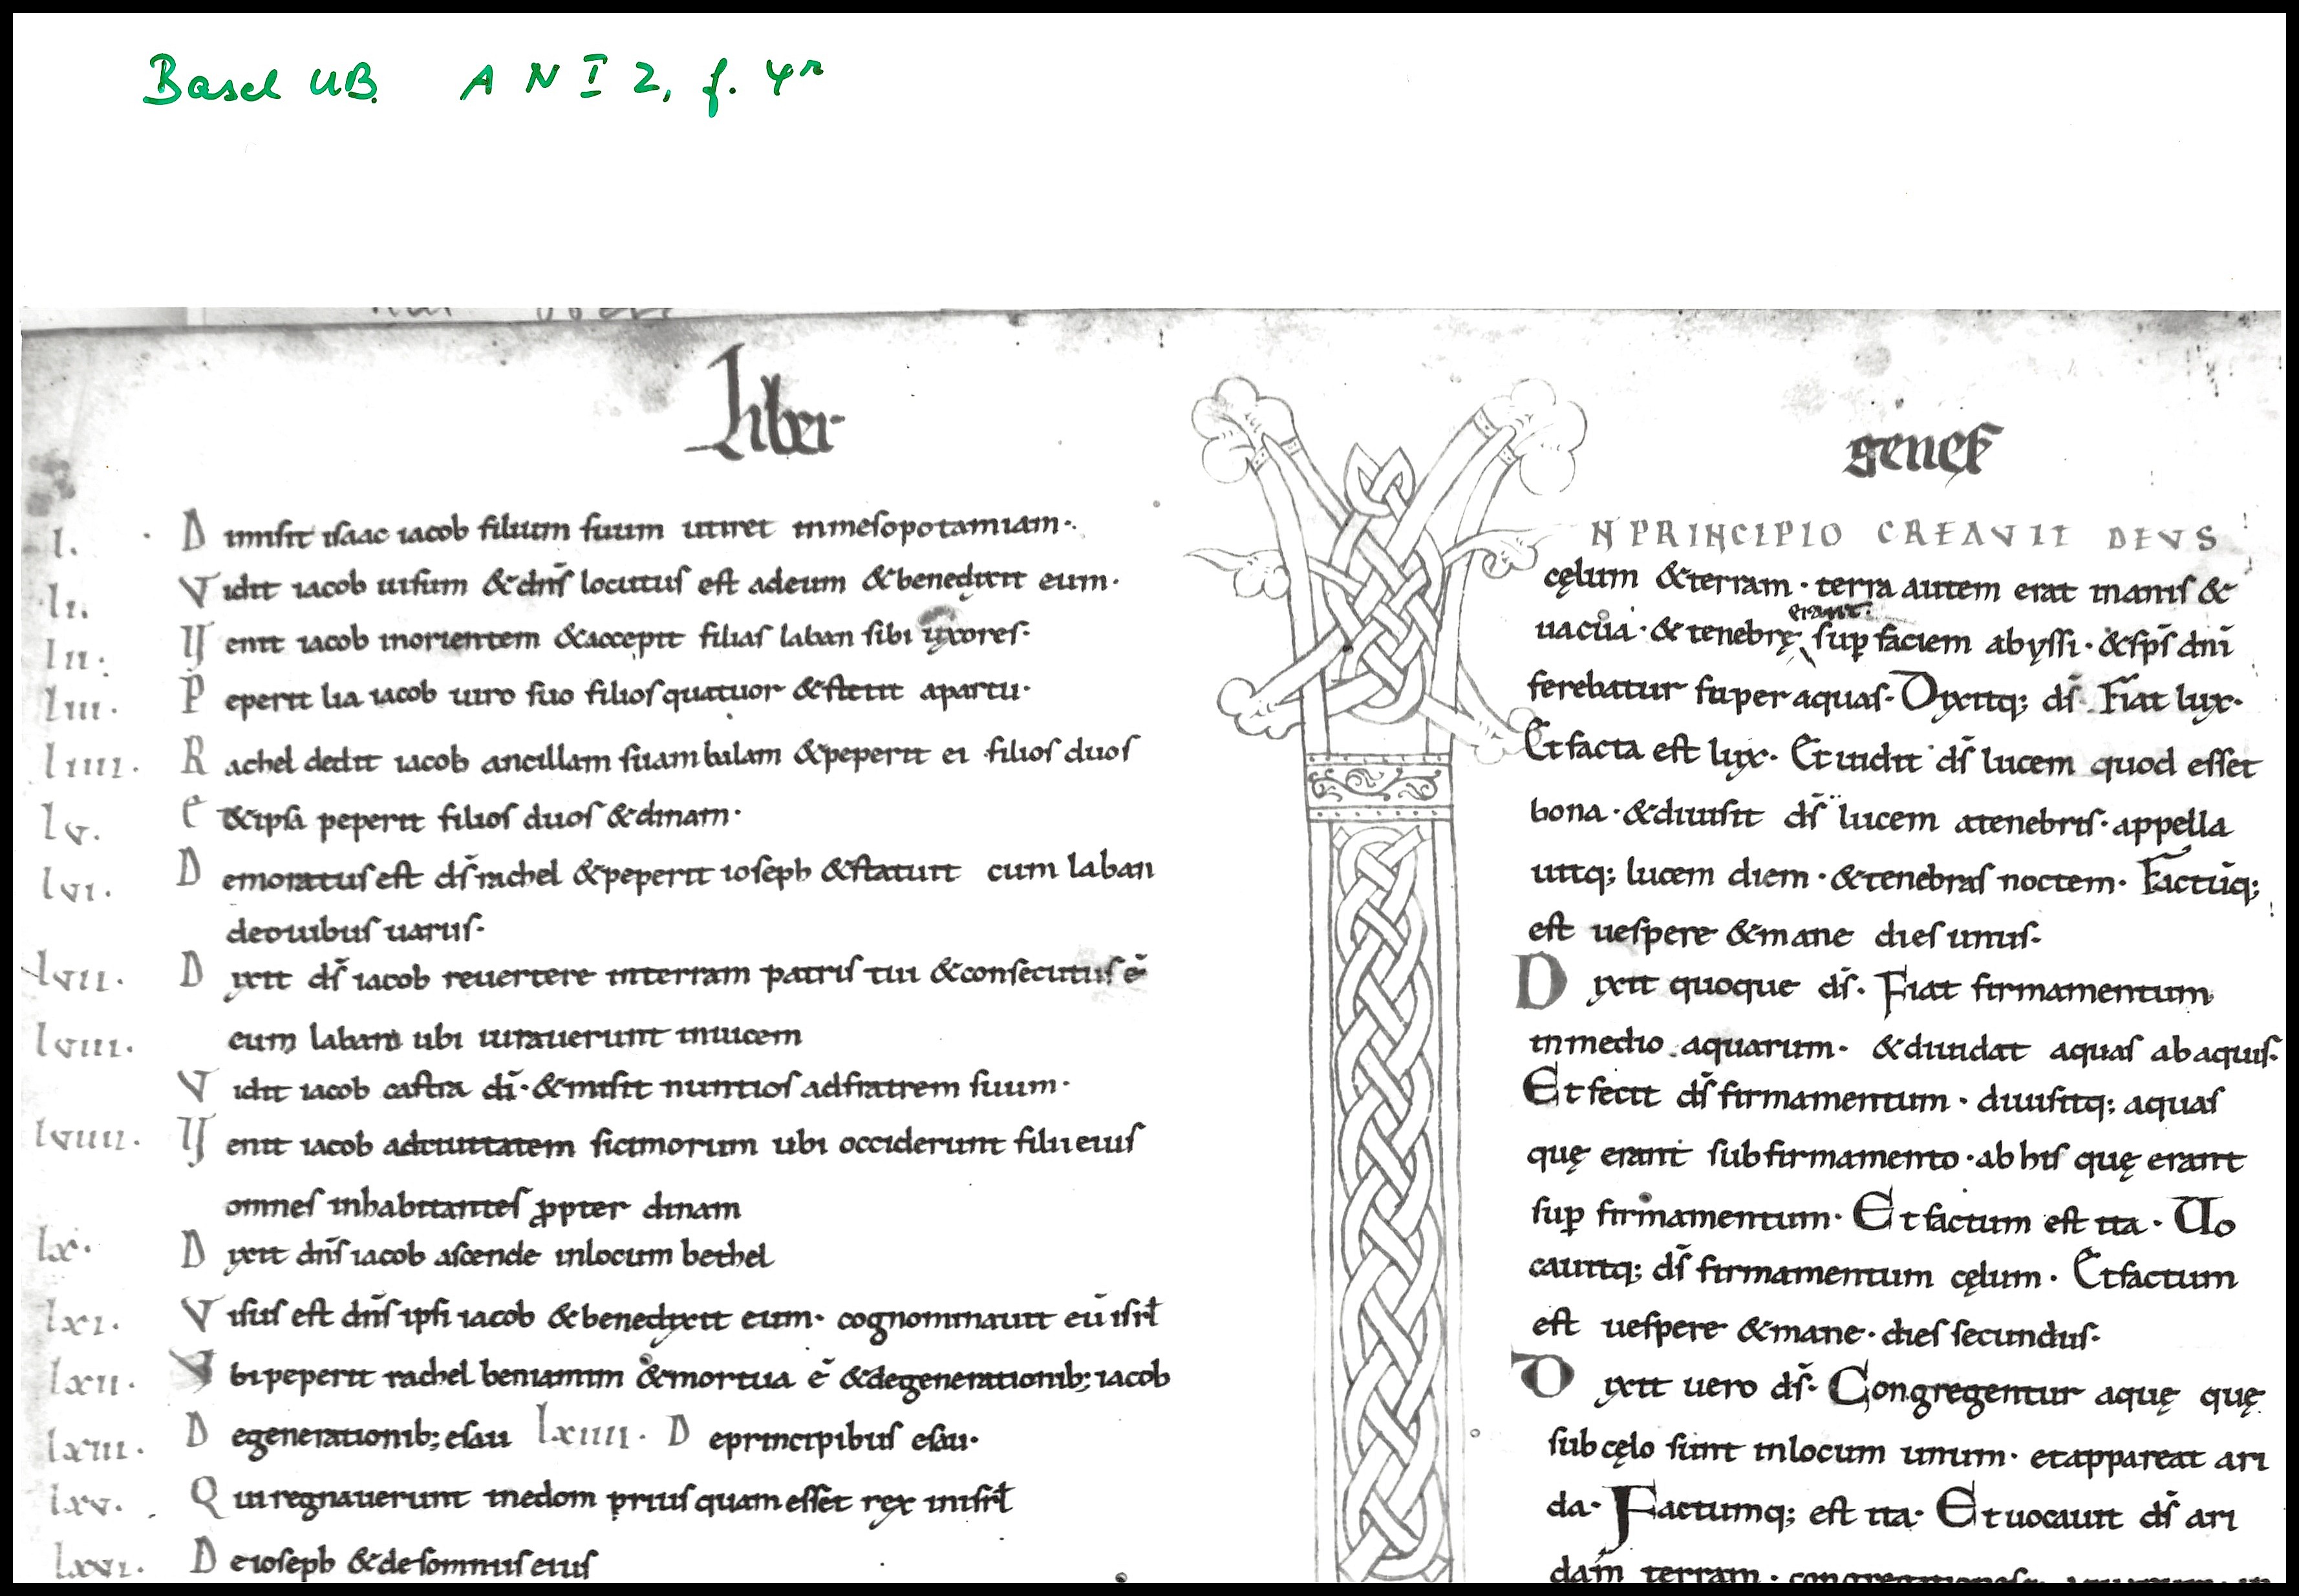 Basel UB. A N I 2, f. 4r
Liber
l. Dimisit isaac iacob filium suum utiret inmesopotamiam·
li. Vidit iacob uisum & dn̄s locutus est adeum & benedixit eum·
lii. Uenit iacob inorientem & accepit filias laban sibi uxores·
liii. Peperit lia iacob uiro suo filios quatuor & stetit apartu·
liiii. Rachel dedit iacob ancillam suam balam & peperit ei filios duos
lv. e & ipsa peperit filios duos & dinam·
lvi. Demoratus est d̄s rachel & peperit ioseph & statuit cum laban
deouibus uariis·
lvii. Dyxit d̄s iacob reuertere interram patris tui & consecutus ē
lviii. cum laban ubi iurauerunt inuicem
Vidit iacob castra dī· & misit nuntios adfratrem suum·
lviiii. Uenit iacob adciuitatem sicimorum ubi occiderunt filii eius
omnes inhabitantes ꝓpter dinam
lx. Dyxit dn̄s iacob ascende inlocum bethel
lxi. Visus est dn̄s ipsi iacob & benedyxit eum· cognominauit eū isrł
lxii. Vbi peperit rachel beniamin & mortua ē & degenerationib; iacob
lxiii. Degenerationib; esau lxiiii. Deprincipibus esau·
lxv. Qui regnauerunt inedom prius quam esset rex inisrł
lxvi. Deioseph & de somniis eius
geneß
N PRINCIPIO CREAVIT DEVS
cęlum & terram· terra autem erat inanis &
erant
uacua· & tenebrę sup̱ faciem abyssi· & sp̄s dn̄i
ferebatur super aquas· Dyxitq; d̄s· Fiat lux·
Et facta est lux· Et uidit d̄s lucem quod esset
bona· & diuisit d̄s lucem atenebris· appella
uitq; lucem diem· & tenebras noctem· Factūq;
est uespere & mane dies unus·
Dixit quoque d̄s· Fiat firmamentum
inmedio aquarum· & diuidat aquas ab aquis·
Et fecit d̄s firmamentum· diuisitq; aquas
quę erant sub firmamento· ab his quę erant
sup̱ firmamentum· Et factum est ita· Uo
cauitq; d̄s firmamentum cęlum· Et factum
est uespere & mane· dies secundus·
Dixit uero d̄s· Congregentur aquę quę
sub cęlo sunt inlocum unum· et appareat ari
da· Factumq; est ita· Et uocauit d̄s ari
dam terram·